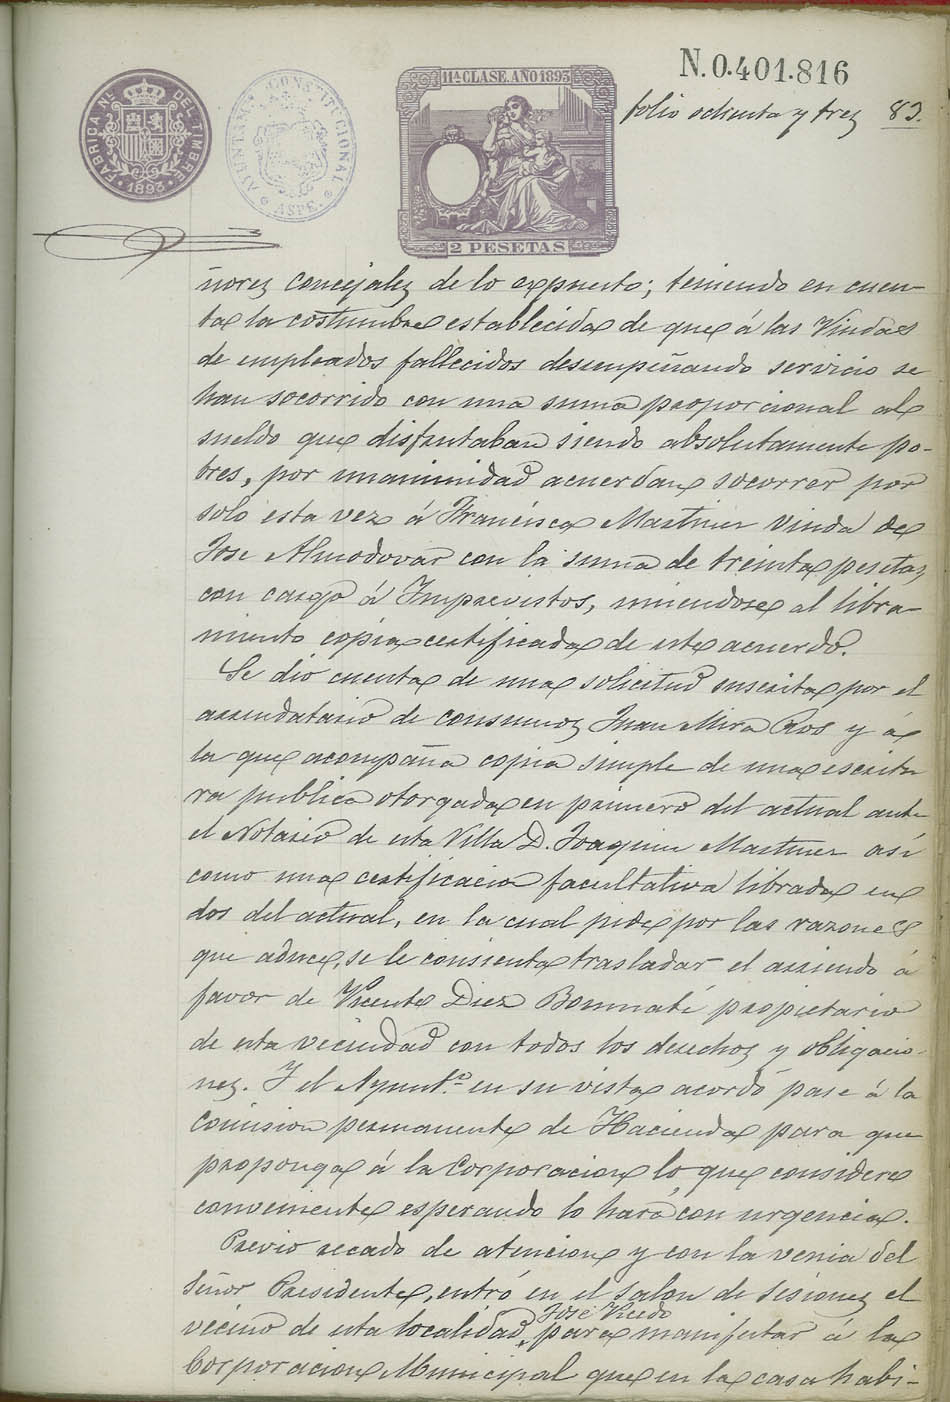 N.0.401.816
folio ochenta y tres 83.
FABRICA NL. DEL TIMBRE
1893
AYUNTAM. CONSTITUCIONAL
ASPE.
11ª CLASE. AÑO 1893
2 PESETAS
ñores Concejales de lo expuesto; teniendo en cuen-
ta la costumbre establecida de que á las Viudas
de empleados fallecidos desempeñando servicio se
han socorrido con una suma proporcional al
sueldo que disfrutaban siendo absolutamente po-
bres, por unanimidad acuerdan socorrer por
solo esta vez á Francisca Martinez viuda de
Jose Almodovar con la suma de treinta pesetas
con cargo á Imprevistos, uniendose al libra-
miento copia certificada de este acuerdo.
Se dio cuenta de una solicitud suscrita por el
arrendatario de consumos Juan Mira Ros y á
la que acompaña copia simple de una escritu
ra publica otorgada en primero del actual ante
el Notario de esta Villa D. Joaquin Martinez así
como una certificacion facultativa librada en
dos del actual, en la cual pide por las razones
que aduce, se le consienta trasladar el arriendo á
favor de Vicente Diez Bonmatí propietario
de esta vecindad con todos los derechos y obligacio-
nes. Y el Ayuntº. en su vista acordó pase á la
Comision permanente de Hacienda para que
proponga á la Corporacion lo que considere
conveniente esperando lo hará con urgencia.
Previo recado de atencion y con la venia del
Señor Presidente, entró en el salon de sesiones el
vecino de esta localidad, José Vicedo para manifestar á la
Corporacion Municipal que en la casa habi-